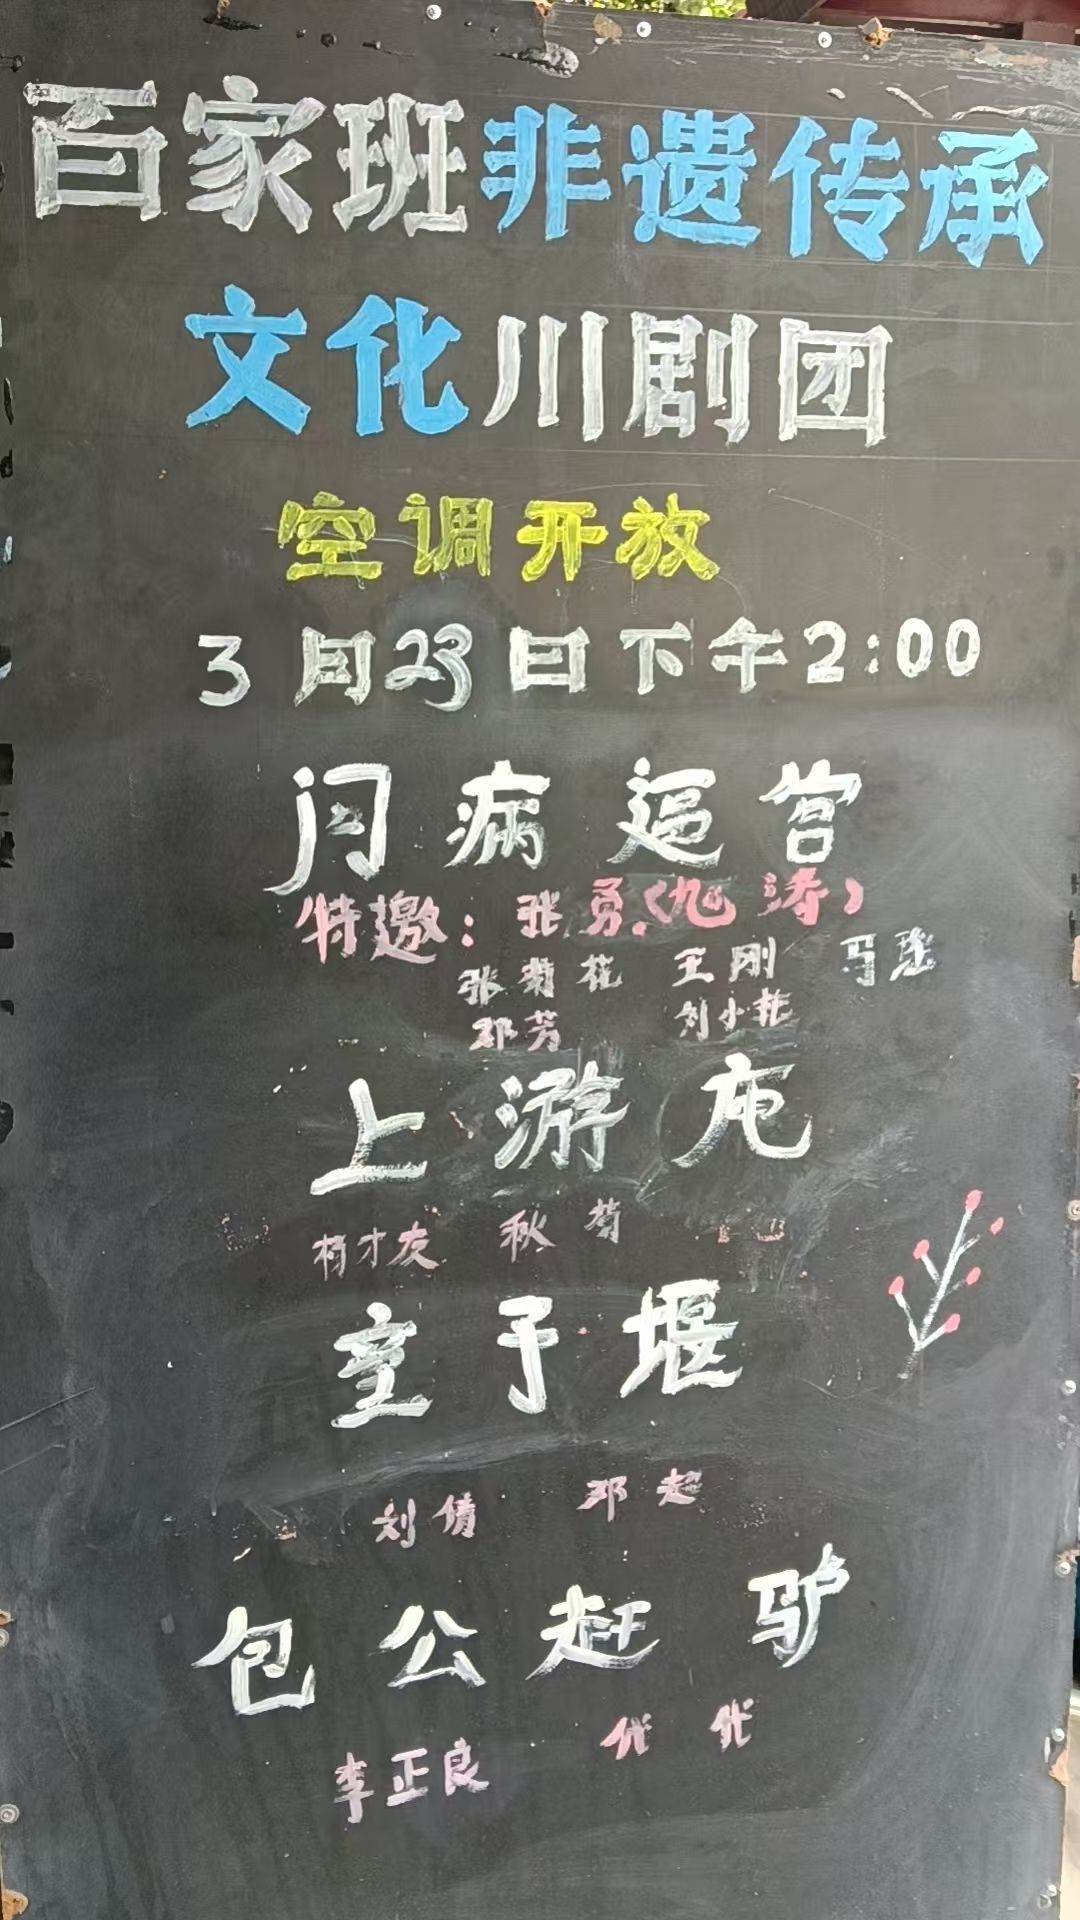 百家班非遗传承
文化川剧团
空调开放
3月23日下午2:00
闯病逼宫
特邀：张勇（旭涛）
张菊花 王刚 马
邓芳 刘小
上游庵
杨才友 秋菊
堰
刘倩 邓超
包公赶驴
李正良 优优